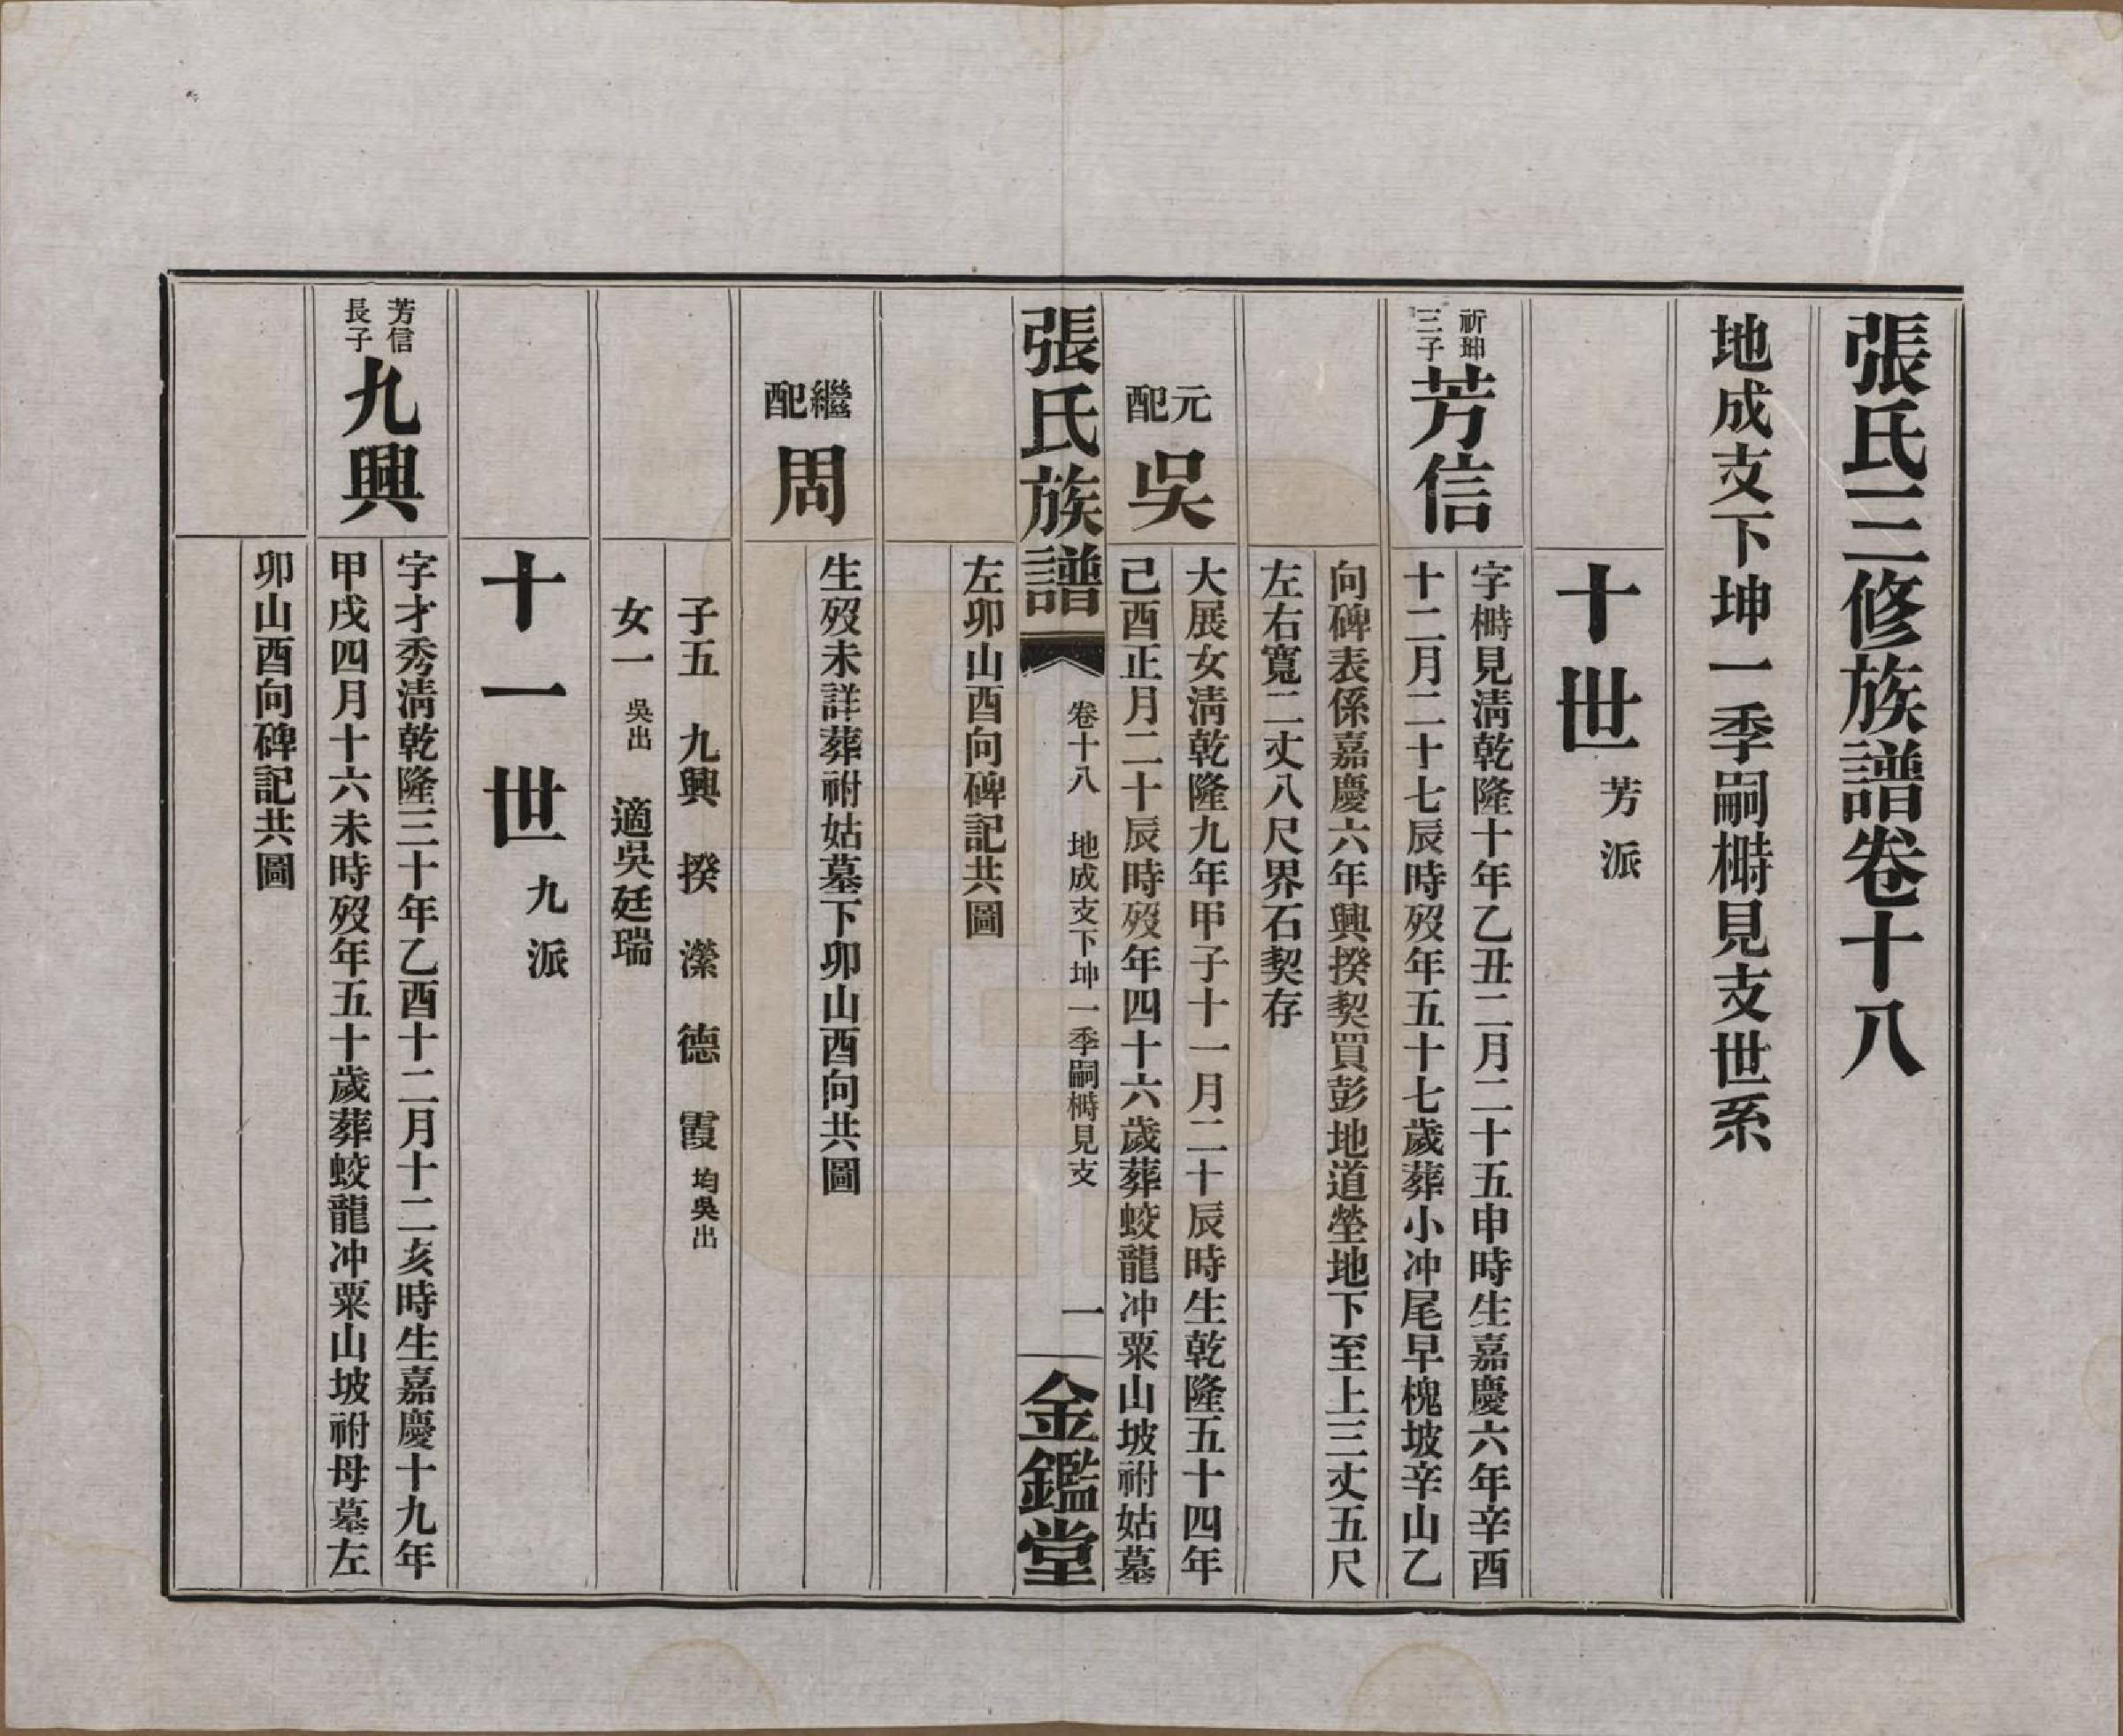 張氏三修族譜卷十八
地成支下坤一季嗣榯見支世系
十世 芳派
祈珅
三子
芳信
字榯見淸乾隆十年乙丑二月二十五申時生嘉慶六年辛酉
十二月二十七辰時歿年五十七歲葬小冲尾早槐坡辛山乙
向碑表係嘉慶六年興揆契買彭地道塋地下至上三丈五尺
左右寬二丈八尺界石契存
元配
吳
大展女淸乾隆九年甲子十一月二十辰時生乾隆五十四年
己酉正月二十辰時歿年四十六歲葬蛟龍冲粟山坡祔姑墓
張氏族譜
卷十八 地成支下坤一季嗣榯見支
一
金鑑堂
左卯山酉向碑記共圖
繼配
周
生歿未詳葬祔姑墓下卯山酉向共圖
子五 九興 揆 濴 德 霞 均吳出
女一 吳出 適吳廷瑞
十一世 九派
芳信
長子
九興
字才秀淸乾隆三十年乙酉十二月十二亥時生嘉慶十九年
甲戌四月十六未時歿年五十歲葬蛟龍冲粟山坡祔母墓左
卯山酉向碑記共圖